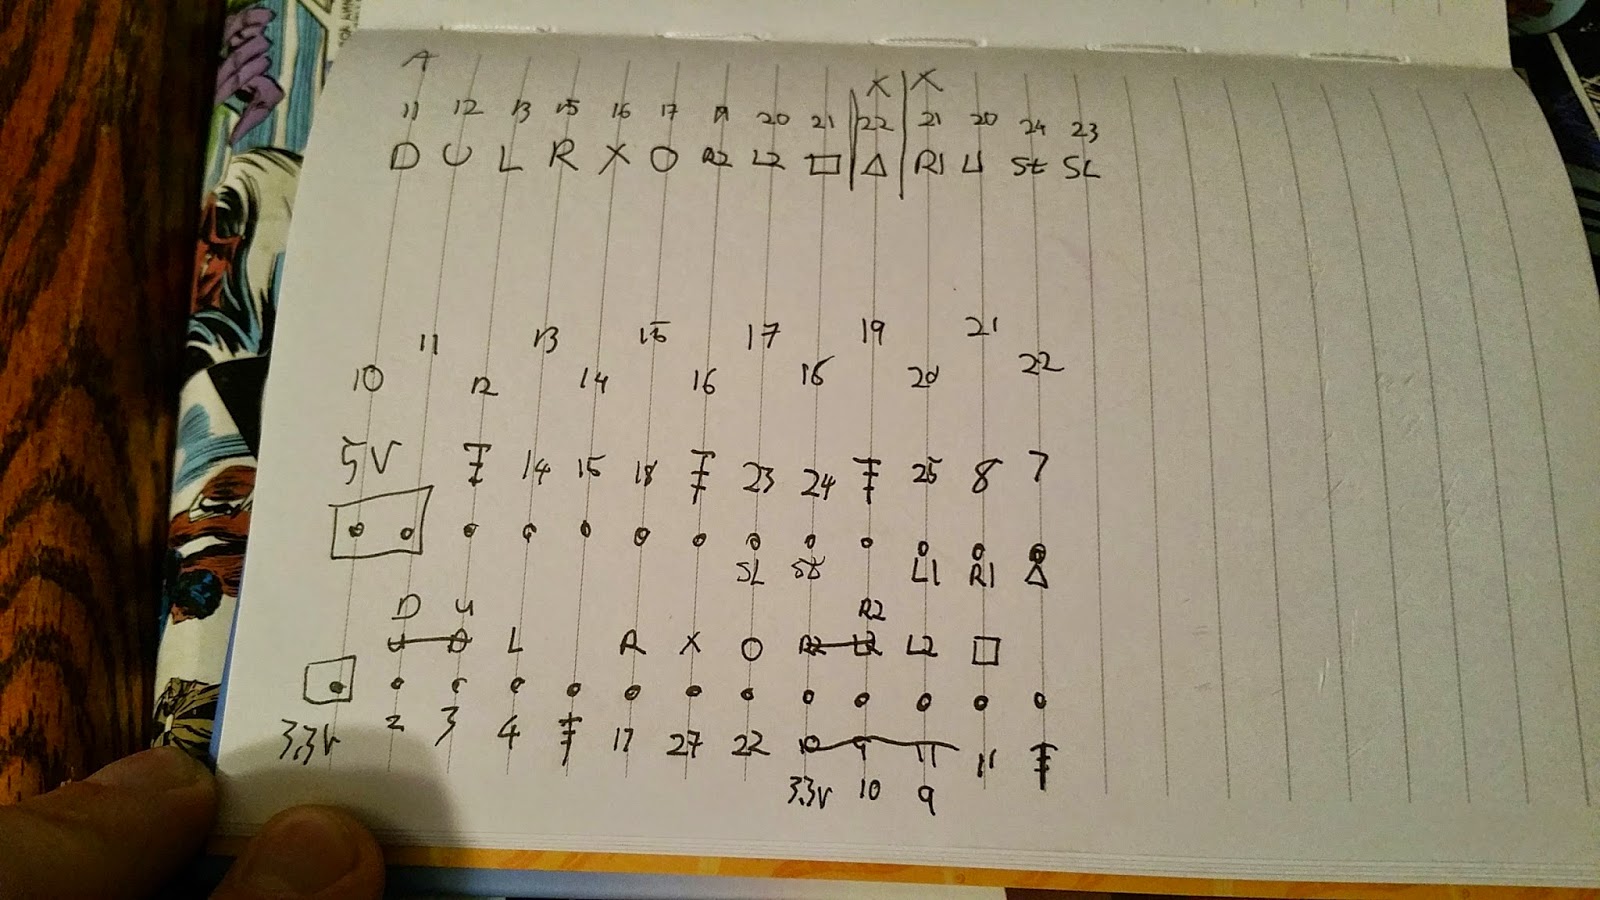 X X
11 12 13 15 16 17 19 20 21 22 21 20 24 23
D U L R X O R2 L2 □ △ R1 L1 St SL
11 13 15 17 19 21
10 12 14 16 18 20 22
5V 14 15 18 23 24 25 8 7
SL St L1 R1 △
D U R2
L R X O R2 L2 L2 □
2 3 4 17 27 22 10 9 11 11
3.3V
3.3V 10 9